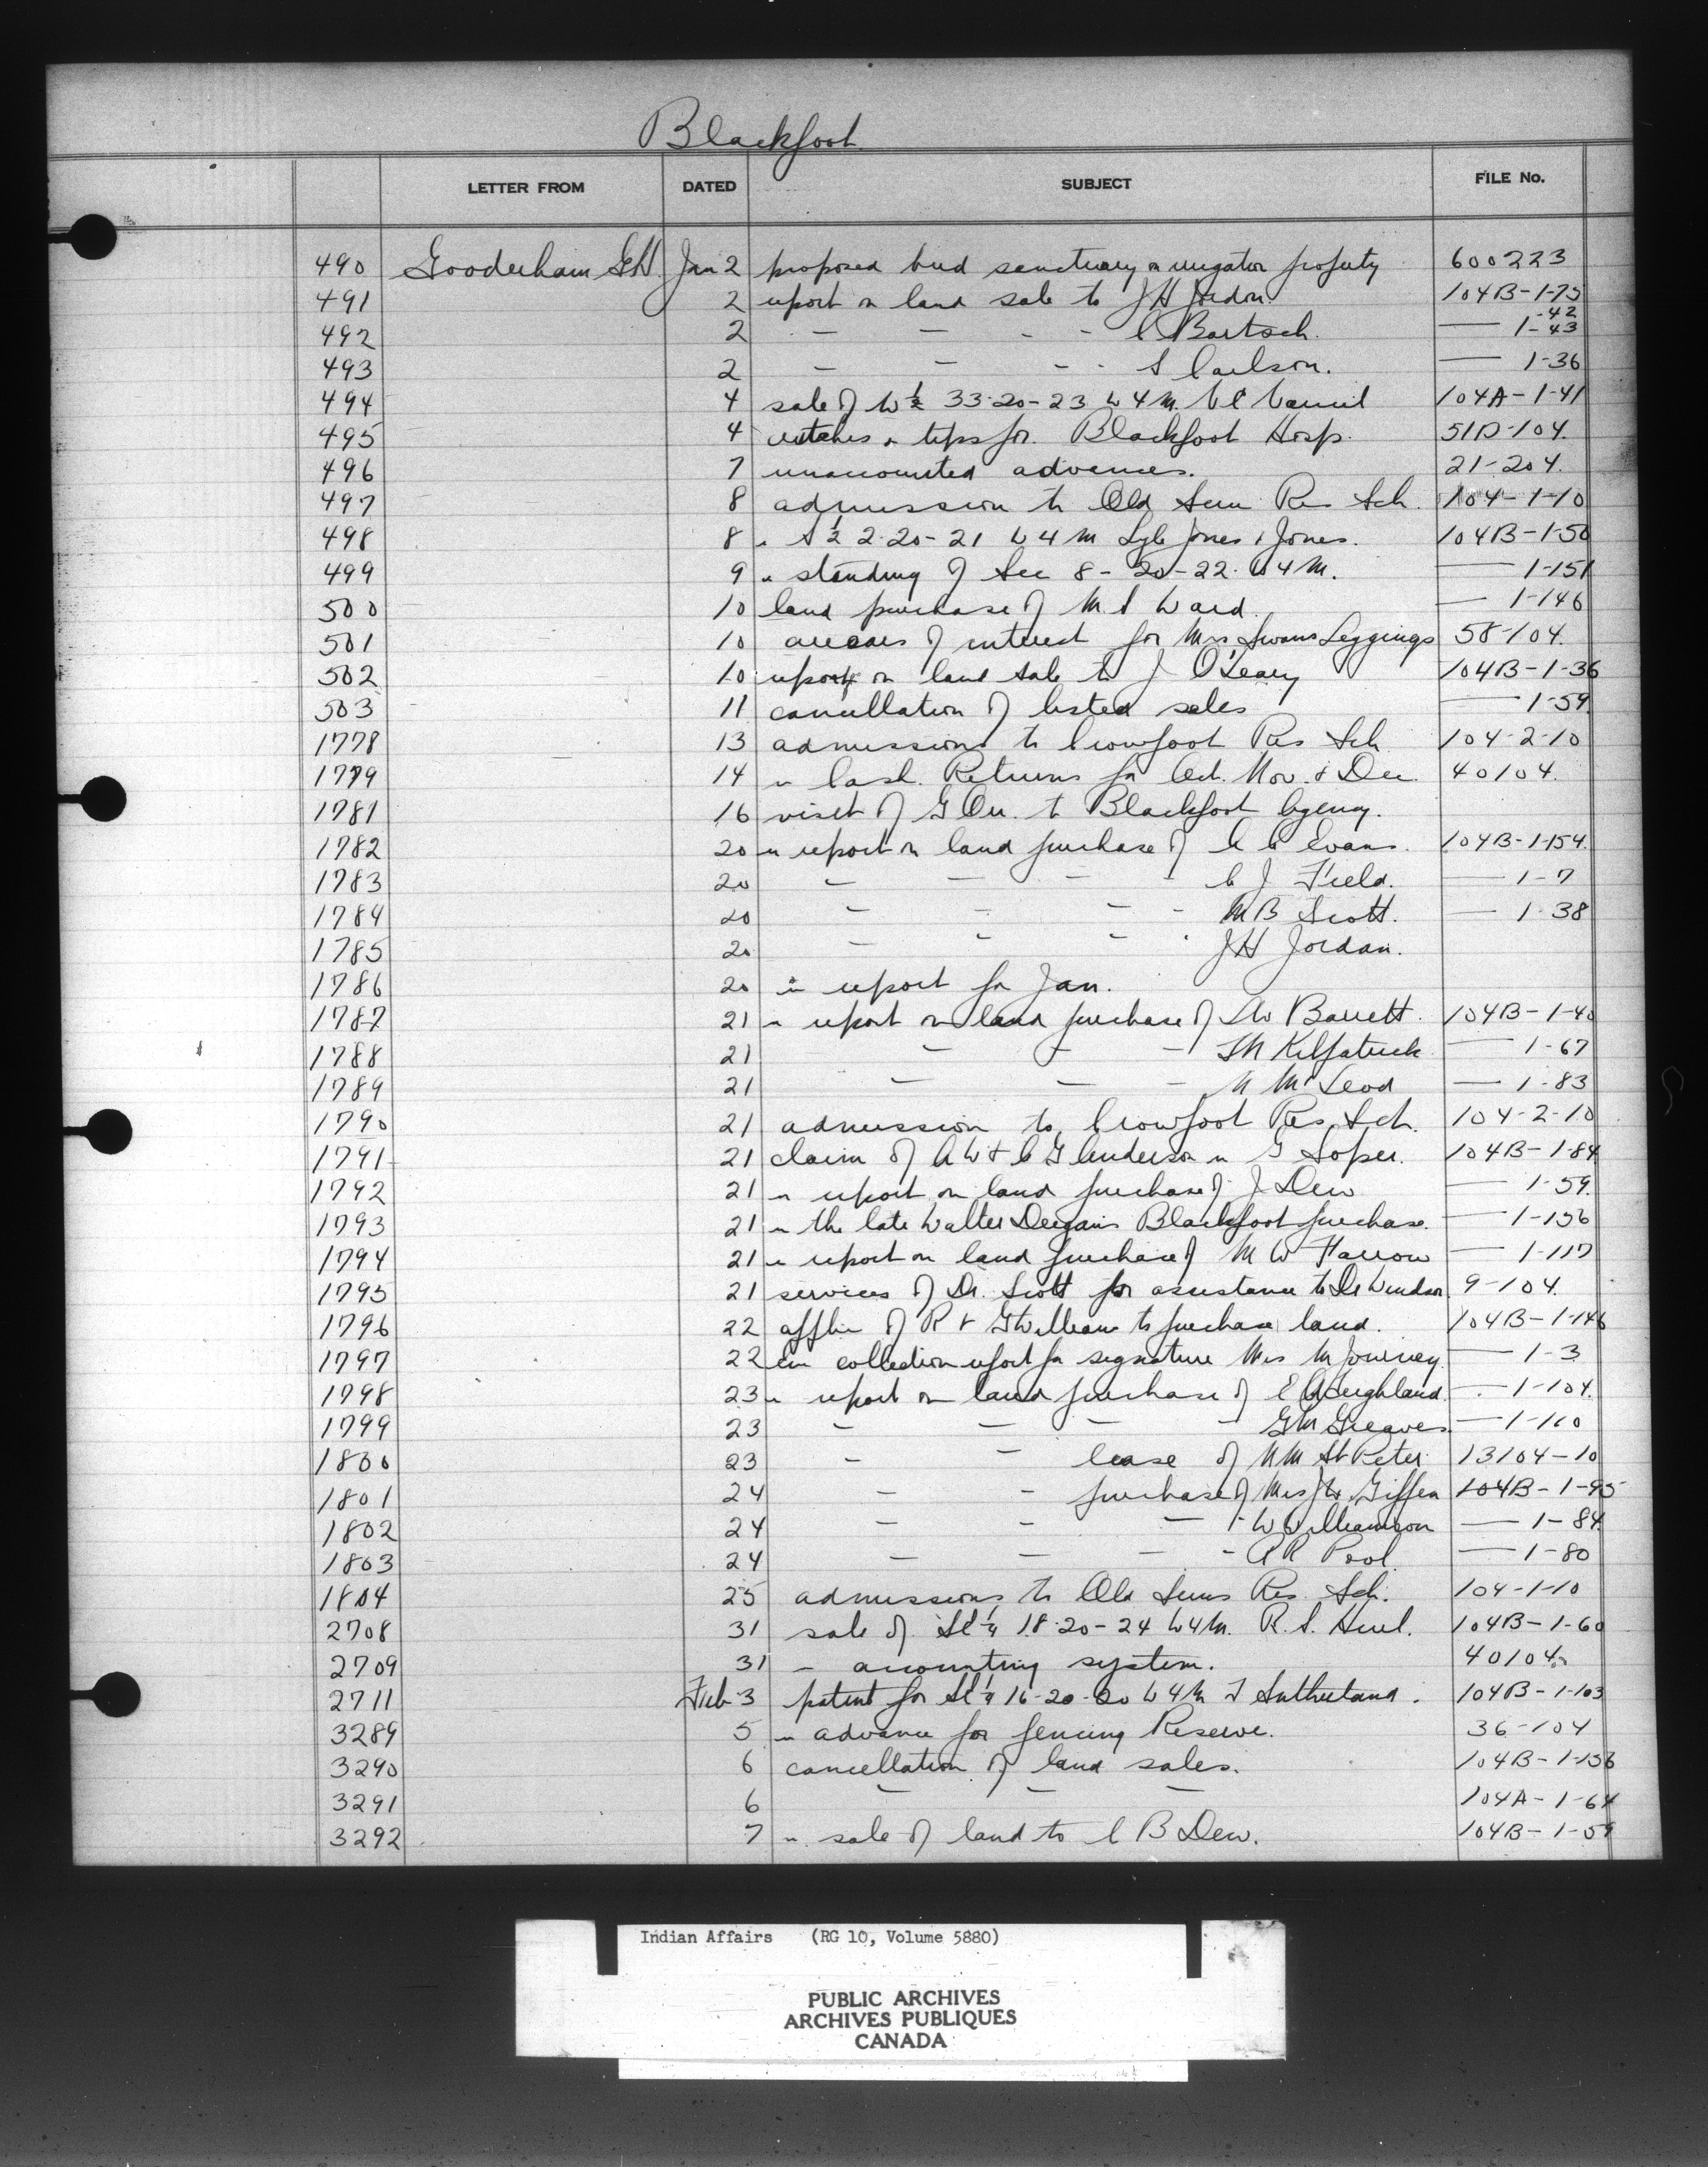 Blackfoot
LETTER FROM DATED SUBJECT FILE No.
490 Gooderham G.H. Jan 2 proposed bird sanctuary on irrigation property 600223
491 2 report on land sale to J H Jordon. 104B-1-75
492 2 — — - - C Bartsch. — 1-42 -43
493 2 — — - - S Carlson. — 1-36
494 4 sale of W ½ 33-20-23 W 4 M. 104A-1-41
495 4 crutches & tips for Blackfoot Hosp. 51D-104.
496 7 unaccounted advances. 21-204.
497 8 admission to Old Sun Res Sch. 104-1-10
498 8 " S ½ 2-20-21 W 4 M Jones & Jones. 104B-1-50
499 9 " standing of Sec 8-20-22 W 4 M. — 1-151
500 10 land purchase of M S Ward. — 1-146
501 10 arrears of interest for Mrs Swans Leggings 58-104.
502 10 report on land sale to J O'Leary 104B-1-36
503 11 cancellation of listed sales — 1-59.
1778 13 admissions to Crowfoot Res Sch 104-2-10
1779 14 " Cash Returns for Oct. Nov. & Dec. 40104.
1781 16 visit of G Orr. to Blackfoot Agency.
1782 20 " report on land purchase of Evans. 104B-1-154.
1783 20 — — — - C J Field. — 1-7
1784 20 — — — - M B Scott. — 1-38
1785 20 — - - - J H Jordan.
1786 20 " report for Jan.
1787 21 " report on land purchase of Barrett. 104B-1-40
1788 21 — — — Kilpatrick — 1-67
1789 21 — — — N McLeod — 1-83
1790 21 admission to Crowfoot Res. Sch. 104-2-10
1791 21 claim of A W & C G Anderson " G Soper. 104B-1-84
1792 21 " report on land purchase of J Dew — 1-59.
1793 21 " the late Walter Deegans Blackfoot purchase. — 1-156
1794 21 " report on land purchase of M W Farrow — 1-117
1795 21 services of Dr. Scott for assistance to Dr Windsor 9-104.
1796 22 applin of R & G Williams to purchase land. 104B-1-146
1797 22 collection report for signature Mrs M Journey. — 1-3
1798 23 " report on land purchase of — 1-104.
1799 23 — — — - G M Greaves — 1-110
1800 23 — — lease of N M St Peter 13104-10
1801 24 — - purchase of Mrs Giffen 104B-1-95
1802 24 — - — - W Williamson — 1-84.
1803 24 — — — - A R Pool — 1-80
1804 25 admissions to Old Suns Res. Sch. 104-1-10
2708 31 sale of SE ¼ 18-20-24 W4M. R. S. 104B-1-60
2709 31 " accounting system. 40104.
2711 Feb 3 patent for SE ¼ 16-20-20 W 4 M Sutherland. 104B-1-103
3289 5 " advance for fencing Reserve. 36-104
3290 6 cancellation of land sales. 104B-1-156
3291 6 — — — 104A-1-64
3292 7 " sale of land to C B Dew. 104B-1-59
Indian Affairs (RG 10, Volume 5880)
PUBLIC ARCHIVES
ARCHIVES PUBLIQUES
CANADA